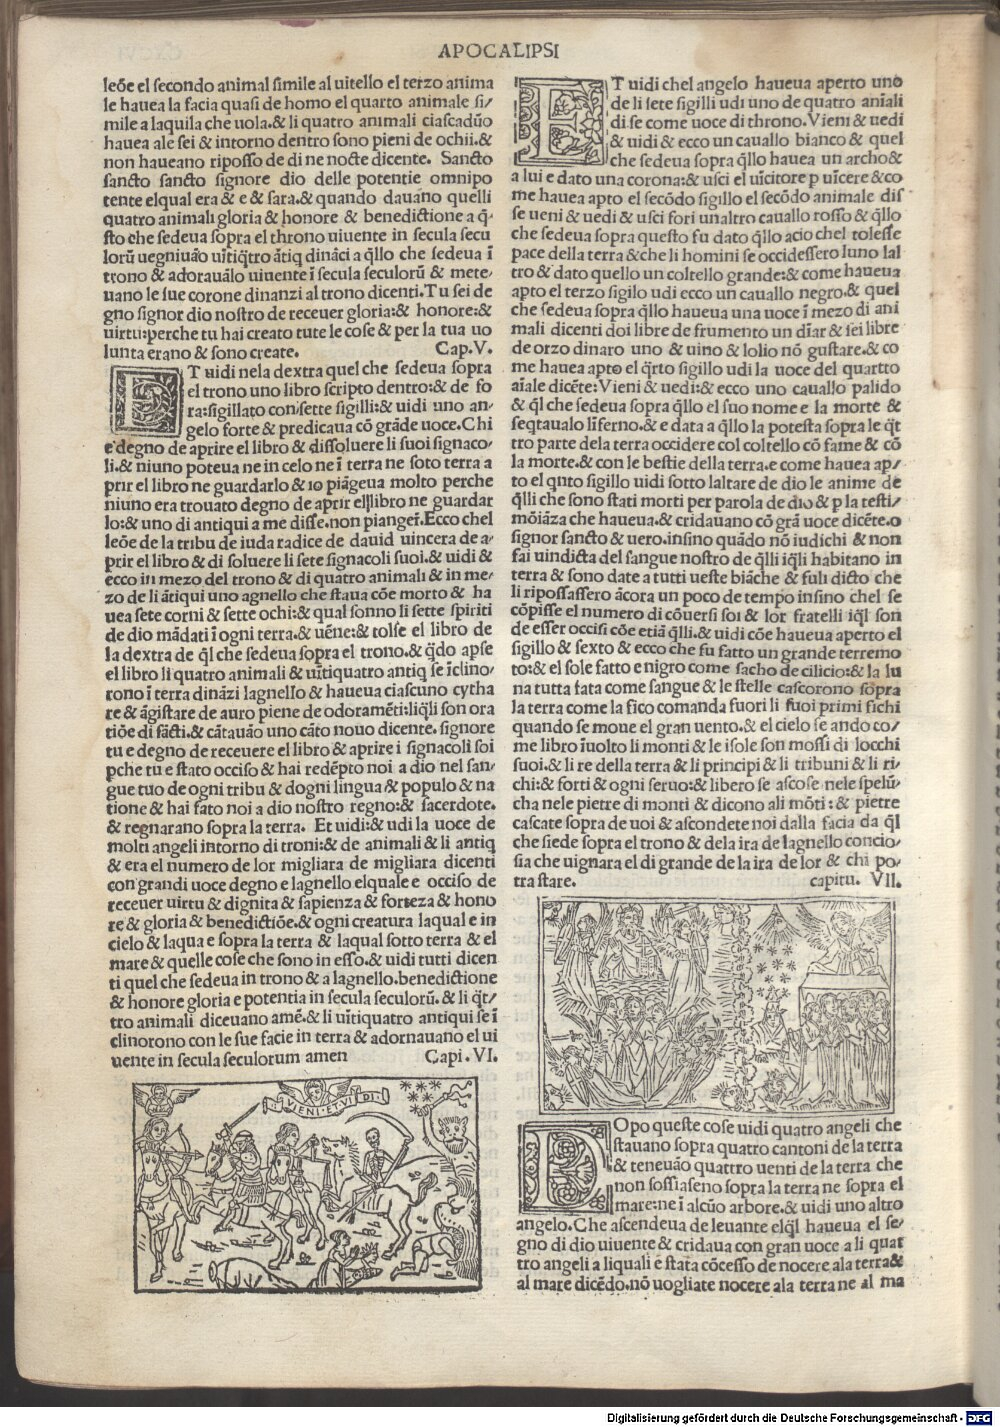 APOCALIPSI
leõe el secondo animal simile al uitello el terzo anima
le hauea la facia quasi de homo el quarto animale si/
mile a laquila che uola.& li quatro animali ciascadũo
hauea ale sei & intorno dentro sono pieni de ochii.&
non haueano riposso de di ne nocte dicente. Sancto
sancto sancto signore dio delle potentie omnipo
tente elqual era & e & sara.& quando dauano quelli
quatro animali gloria & honore & benedictione a q̃/
sto che sedeua sopra el throno uiuente in secula secu
lorũ uegniuão uĩtiq̃tro ãtiq dinãci a q̃llo che sedeua ĩ
trono & adorauãlo uiuente ĩ secula seculorũ & mete/
uano le sue corone dinanzi al trono dicenti.Tu sei de
gno signor dio nostro de receuer gloria:& honore:&
uirtu:perche tu hai creato tute le cose & per la tua uo
lunta erano & sono create. Cap.V.
ET uidi nela dextra quel che sedeua sopra
el trono uno libro scripto dentro:& de fo
ra:sigillato con sette sigilli:& uidi uno an/
gelo forte & predicaua cõ grãde uoce.Chi
e degno de aprire el libro & dissoluere li suoi signaco/
li.& niuno poteua ne in celo ne ĩ terra ne soto terra a
prir el libro ne guardarlo & io piãgeua molto perche
niuno era trouato degno de aprir el libro ne guardar
lo:& uno di antiqui a me disse.non pianger̃.Ecco chel
leõe de la tribu de iuda radice de dauid uincera de a/
prir el libro & di soluere li sete signacoli suoi.& uidi &
ecco in mezo del trono & di quatro animali & in me/
zo de li ãtiqui uno agnello che staua cõe morto & ha
uea sete corni & sette ochi:& qual sonno li sette spiriti
de dio mãdati ĩ ogni terra.& uẽne:& tolse el libro de
la dextra de q̃l che sedeua sopra el trono.& q̃do apse
el libro li quatro animali & uĩtiquatro antiq se ĩclino/
rono ĩ terra dinãzi lagnello & haueua ciascuno cytha
re & ãgistare de auro piene de odoramẽti:liq̃li son ora
tiõe di sãcti.& cãtauão uno cãto nouo dicente. signore
tu e degno de receuere el libro & aprire i signacoli soi
pche tu e stato occiso & hai redẽpto noi a dio nel san/
gue tuo de ogni tribu & dogni lingua & populo & na
tione & hai fato noi a dio nostro regno:& sacerdote.
& regnarano sopra la terra. Et uidi:& udi la uoce de
molti angeli intorno di troni:& de animali & li antiq
& era el numero de lor migliara de migliara dicenti
con grandi uoce degno e lagnello elquale e occiso de
receuer uirtu & dignita & sapienza & forteza & hono
re & gloria & benedictiõe.& ogni creatura laqual e in
cielo & laqua e sopra la terra & laqual sotto terra & el
mare & quelle cose che sono in esso.& uidi tutti dicen
ti quel che sedeua in trono & a lagnello.benedictione
& honore gloria e potentia in secula seculorũ.& li q̃t/
tro animali diceuano amẽ.& li uĩtiquatro antiqui se ĩ
clinorono con le sue facie in terra & adornauano el ui
uente in secula seculorum amen Capi.VI.
VIENI ET VIDI
ET uidi chel angelo haueua aperto uno
de li sete sigilli udi uno de quatro aniali
di se come uoce di throno.Vieni & uedi
& uidi & ecco un cauallo bianco & quel
che sedeua sopra q̃llo hauea un archo&
a lui e dato una corona:& usci el uĩcitore p uĩcere &co
me hauea apto el secõdo sigillo el secõdo animale dis
se ueni & uedi & usci fori unaltro cauallo rosso & q̃llo
che sedeua sopra questo fu dato q̃llo acio chel tolesse
pace della terra & che li homini se occidessero luno lal
tro & dato quello un coltello grande:& come haueua
apto el terzo sigilo udi ecco un cauallo negro.& quel
che sedeua sopra q̃llo haueua una uoce ĩ mezo di ani
mali dicenti doi libre de frumento un dĩar & sei libre
de orzo dinaro uno & uino & lolio nõ gustare.& co
me hauea apto el q̃rto sigillo udi la uoce del quartto
aĩale dicẽte:Vieni & uedi:& ecco uno cauallo palido
& q̃l che sedeua sopra q̃llo el suo nome e la morte &
seqtaualo lĩferno.& e data a q̃llo la potesta sopra le q̃t
tro parte dela terra occidere col coltello cõ fame & cõ
la morte.& con le bestie della terra.e come hauea ap/
to el qnto sigillo uidi sotto laltare de dio le anime de
q̃lli che sono stati morti per parola de dio & p la testi/
mõiãza che haueua.& cridauano cõ grã uoce dicẽte.o
signor sancto & uero.insino quãdo nõ iudichi & non
fai uindicta del sangue nostro de q̃lli iq̃li habitano in
terra & sono date a tutti ueste biãche & fuli dicto che
li ripossassero ãcora un poco de tempo insino chel se
cõpisse el numero di cõuersi soi & lor fratelli iq̃l son
de esser occisi cõe etiã q̃lli.& uidi cõe haueua aperto el
sigillo & sexto & ecco che fu fatto un grande terremo
to:& el sole fatto e nigro come sacho de cilicio:& la lu
na tutta fata come sangue & le stelle cascorono sopra
la terra come la fico comanda fuori li suoi primi fichi
quando se moue el gran uento.& el cielo se ando co/
me libro ĩuolto li monti & le isole son mossi di locchi
suoi.& li re della terra & li principi & li tribuni & li ri/
chi:& forti & ogni seruo:& libero se ascose nele spelũ/
cha nele pietre di monti & dicono ali mõti:& pietre
cascate sopra de uoi & ascondete noi dalla facia da q̃l
che siede sopra el trono & dela ira de lagnello concio/
sia che uignara el di grande de la ira de lor & chi po/
tra stare. capitu. VII.
DOpo queste cose uidi quatro angeli che
stauano sopra quatro cantoni de la terra
& teneuão quattro uenti de la terra che
non soffiaseno sopra la terra ne sopra el
mare:ne ĩ alcũo arbore.& uidi uno altro
angelo.Che ascendeua de leuante elq̃l haueua el se/
gno di dio uiuente & cridaua con gran uoce a li quat
tro angeli a liquali e stata cõcesso de nocere ala terra&
al mare dicẽdo.nõ uogliate nocere ala terra ne al ma
Digitalisierung gefördert durch die Deutsche Forschungsgemeinschaft - DFG